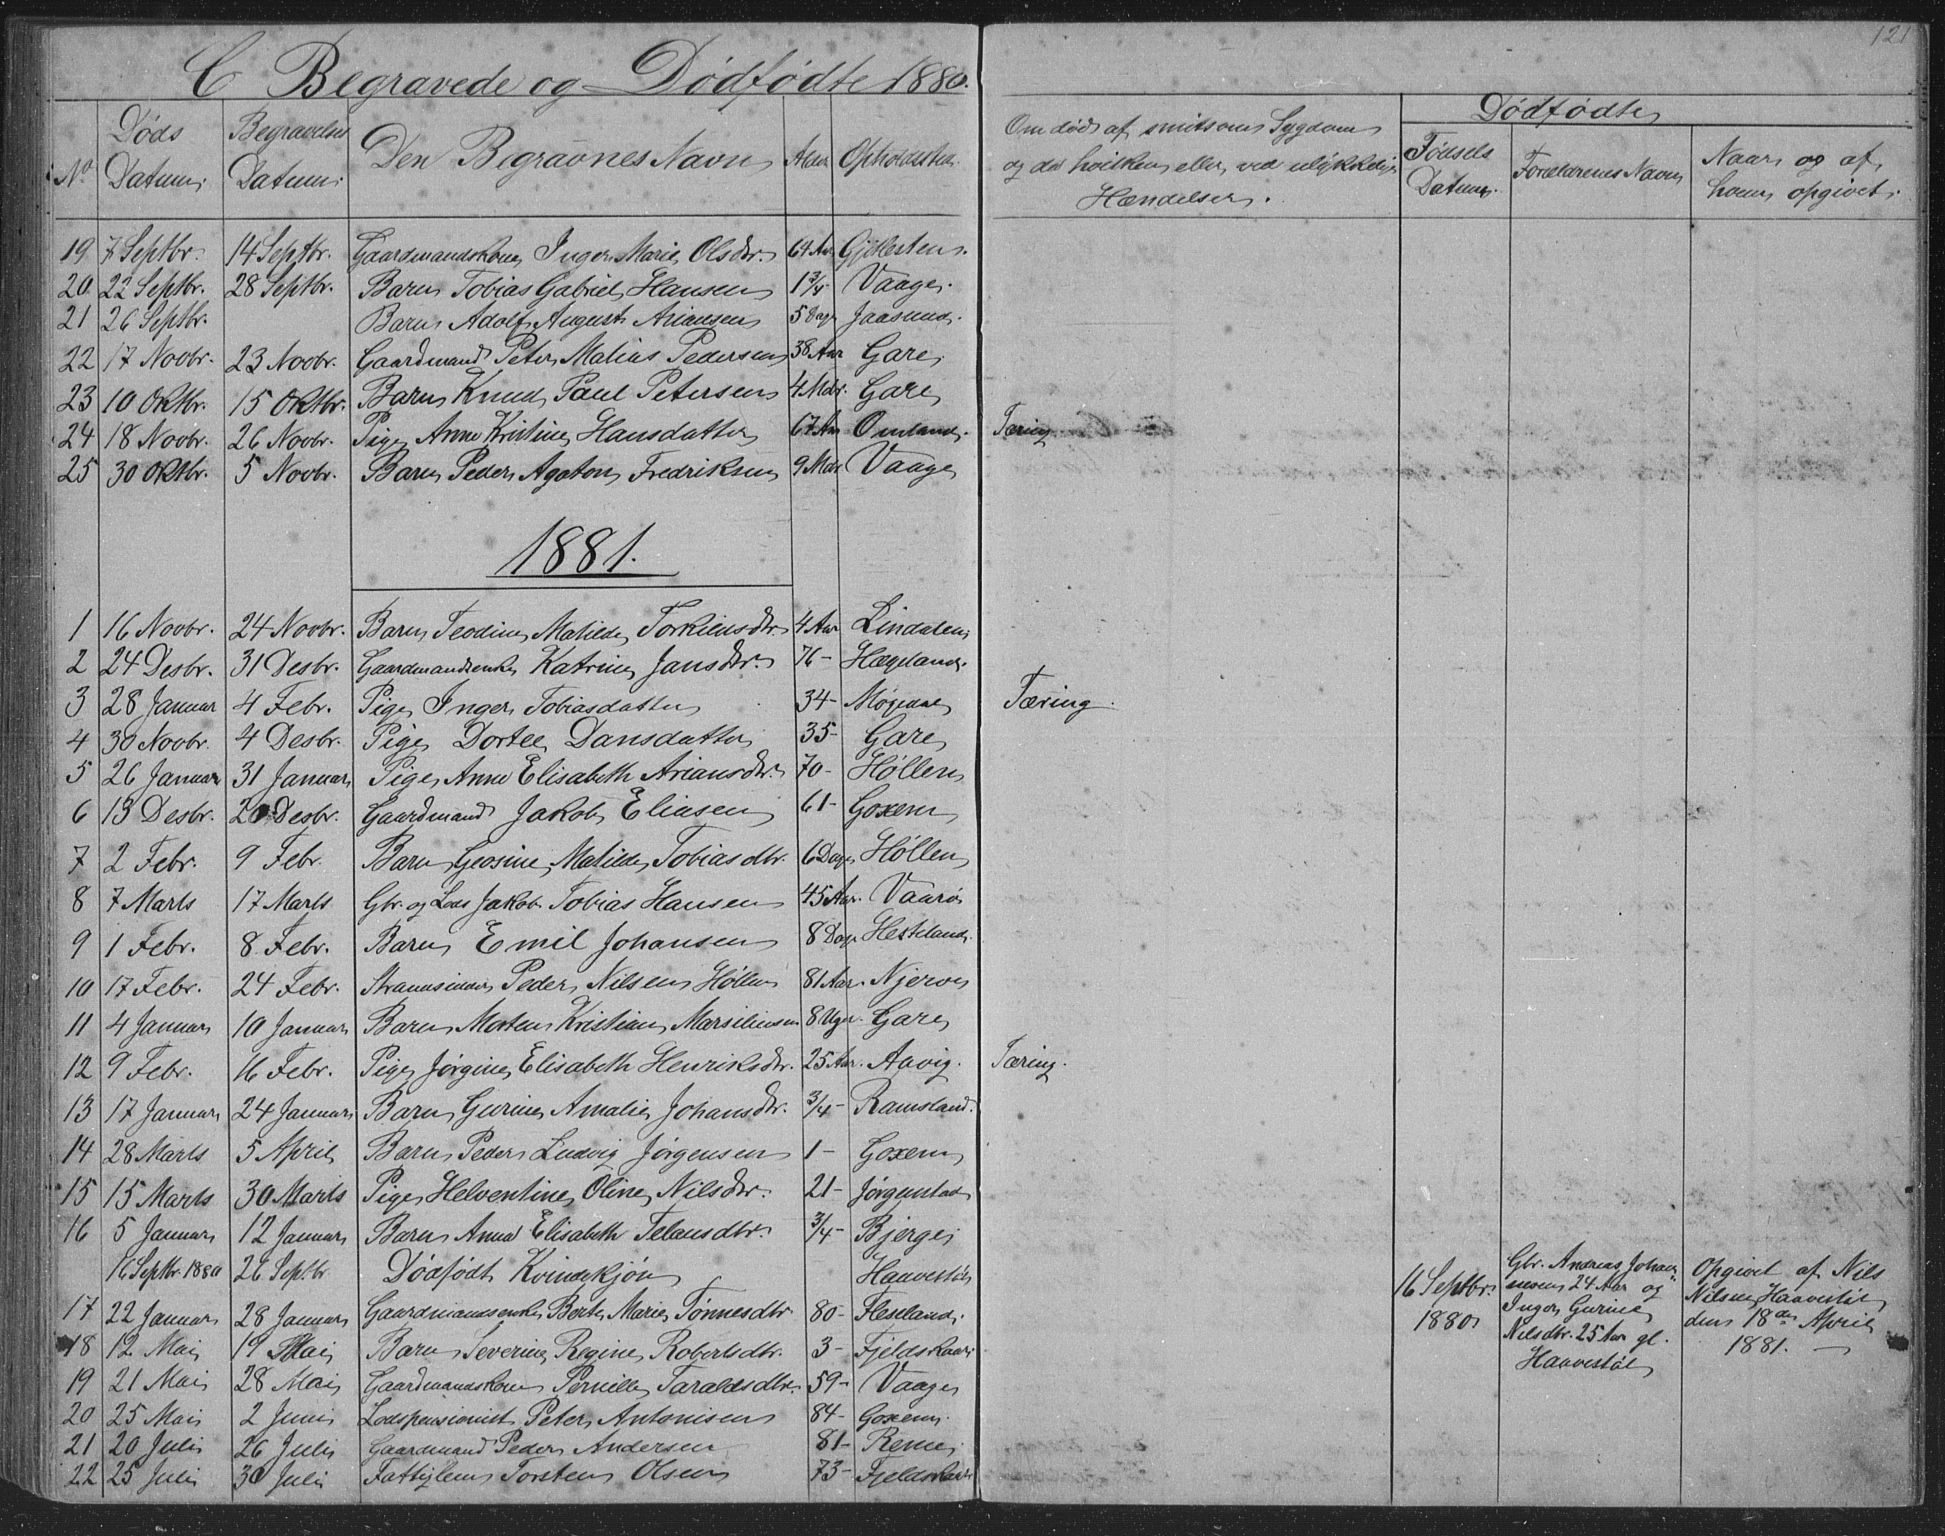 121
C Begravede og Dødfødte 1880.
No Døds Datum. Begravelses Datum. Den Begravnes Navn Alder Opholdssted. Om død af smitsom Sygdom og da hvilken eller ved ulykkelig Hændelse. Dødfødte Fødsels Datum. Forældrenes Navn Naar og af hvem opgivet.
19 7 Septbr. 14 Septbr. Gaardmandskone Inger Marie Olsdtr. 64 Aar
20 22 Septbr. 28 Septbr. Barn Tobias Gabriel Hansen 1 3/4 Vaage.
21 26 Septbr. Barn Adolf August Ariansen 5 Dage Jaasund.
22 17 Novbr. 23 Novbr. Gaardmand Peter Matias Pedersen 38 Aar Gare
23 10 Oktbr. 15 Oktbr. Barn Knud Paul Petersen 4 Mdr. Gare
24 18 Novbr. 26 Novbr. Pige Anne Kristine Hansdatter 67 Aar Omland. Tæring
25 30 Oktbr. 5 Novbr. Barn Peder Agaton Fredriksen 9 Mdr Vaage
1881.
1 16 Novbr. 24 Novbr. Barn Teodine Matilde Torkildsdtr 4 Aar Lindalen
2 24 Desbr. 31 Desbr. Gaardmandsenke Katrine Jansdtr. 76 - Hægeland.
3 28 Januar 4 Febr. Pige Inger Tobiasdatter 34 - Møgedal Tæring.
4 30 Novbr. 4 Desbr. Pige Dortee Dansdatter 35 - Gare
5 26 Januar 31 Januar Pige Anne Elisabeth Ariansdtr. 70 - Høllen
6 13 Desbr. 20 Desbr. Gaardmand Jakob Eliasen 61 - Goxem
7 2 Febr. 9 Febr. Barn Geosine Matilde Tobiasdtr. 6 Dage Høllen
8 7 Marts 17 Marts Gbr. og Lods Jakob Tobias Hansen 45 Aar. Vaarø
9 1 Febr. 8 Febr. Barn Emil Johansen 8 Dage Hesteland.
10 17 Febr. 24 Febr. Peder Nilsen Høllen 81 Aar. Njerve
11 4 Januar 10 Januar Barn Morten Kristian Marsiliusen 8 Uger Gare
12 9 Febr. 16 Febr. Pige Jørgine Elisabeth Henriksdtr. 25 Aar. Aavig. Tæring.
13 17 Januar 24 Januar Barn Gurine Amalie Johansdtr. 3/4 - Ramsland.
14 28 Marts 5 April Barn Peder Ludvig Jørgensen 1 - Goxem
15 15 Marts 30 Marts Pige Helventine Oline Nilsdtr. 21 - Jørgenstad
16 5 Januar 12 Januar Barn Anna Elisabeth Telausdtr. 3/4 - Bjerge
16 Septbr. 1880 26 Septbr Dødfødt Kvindekjøn Haavestøl
16 Septbr. 1880 Gbr. Andreas Johannesen 24 Aar og Inger Gurine Nilsdtr. 25 Aar gl. Haavestøl Opgivet af Nils Nilsen Haavestøl den 18de April 1881.
17 22 Januar 28 Januar Gaardmandsenke Berte Marie Tønnesdtr 80 - Heseland.
18 12 Mai 19 Mai Barn Severine Regine Robertsdtr. 3 - Fjeldskaar
19 21 Mai 28 Mai Gaardmandskone Pernille Taraldsdtr. 59 - Vaage
20 25 Mai 2 Juni Lodspensionist Peter Antonisen 84 - Goxem.
21 20 Juli 26 Juli Gaardmand Peder Andersen 81 - Reme.
22 25 Juli 30 Juli Fattiglem Torsten Olsen 73 - Fjeldskaar